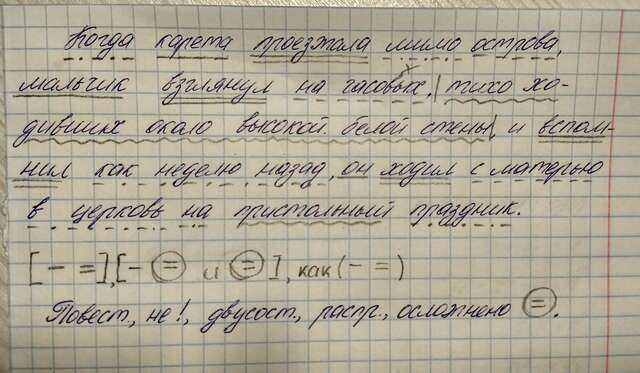 Когда карета проезжала мимо острова,
мальчик взглянул на часовых, тихо хо-
дивших около высокой белой стены, и вспом-
нил как неделю назад, он ходил с матерью
в церковь на пристольный праздник.
[– =], [– = и =], как (– =)
Повест., не!, двусост., распр., осложнено =.